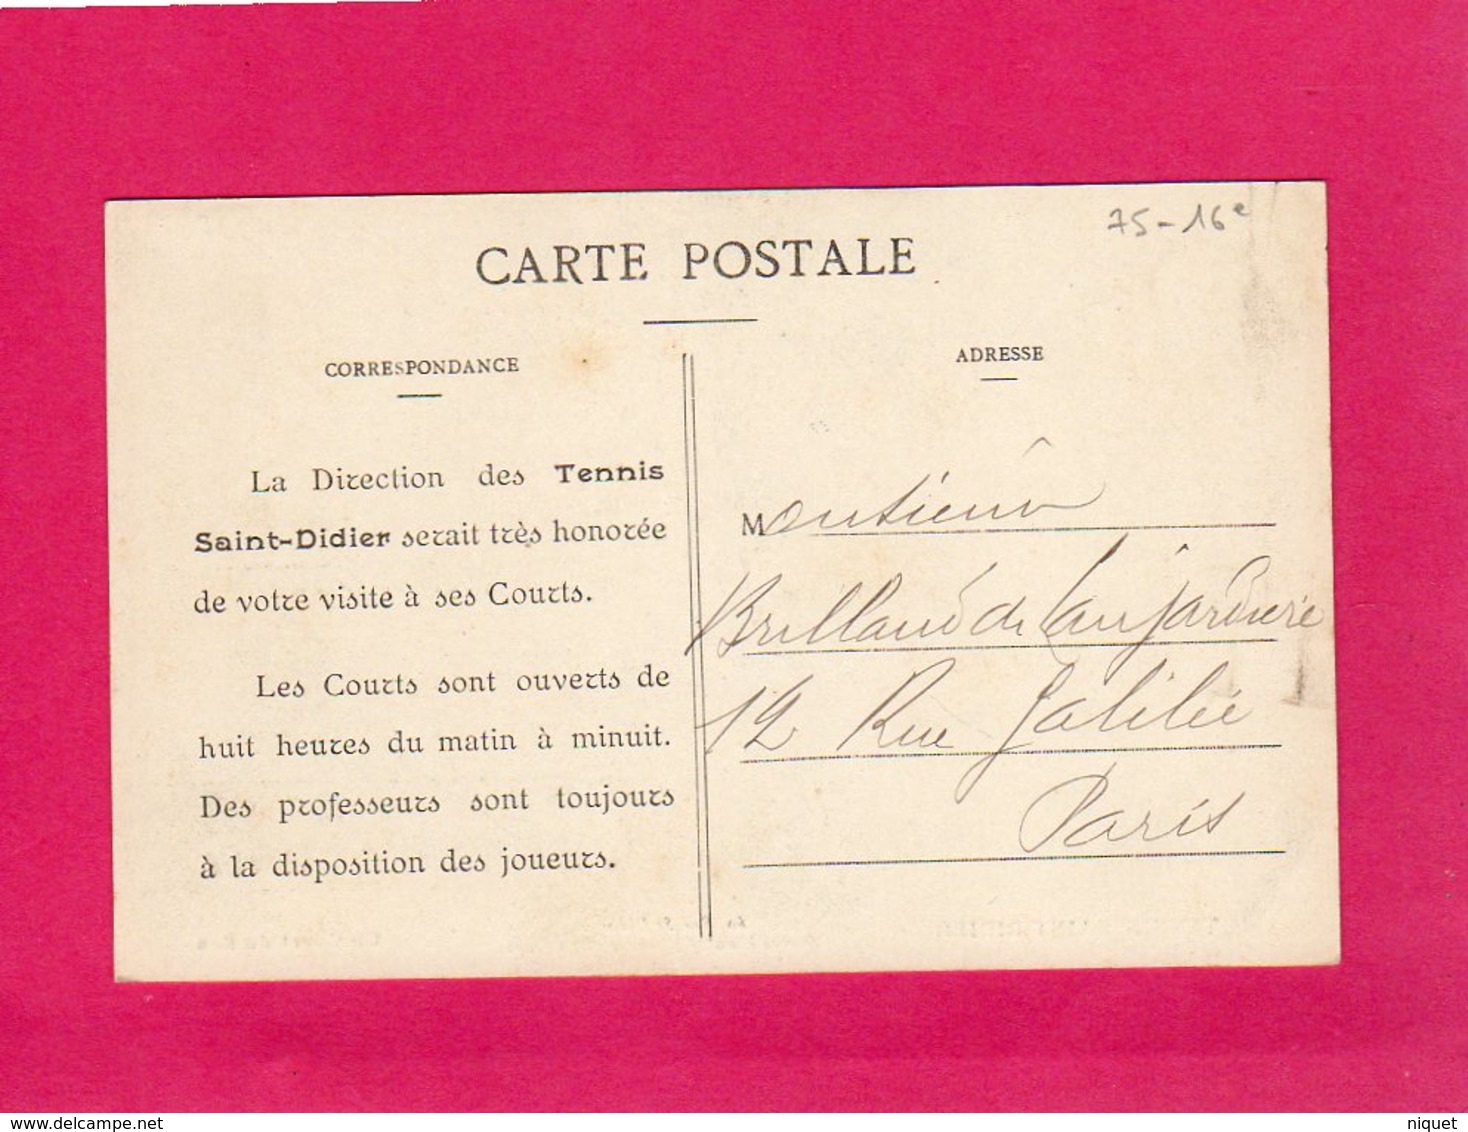 75-16e
CARTE POSTALE
CORRESPONDANCE
La Direction des Tennis
Saint-Didier serait très honorée
de votre visite à ses Courts.
Les Courts sont ouverts de
huit heures du matin à minuit.
Des professeurs sont toujours
à la disposition des joueurs.
ADRESSE
Monsieur
Brillaud de Laujardière
12 Rue Galilée
Paris
delcampe.net
niquet